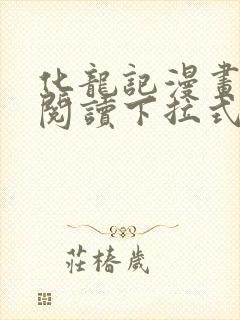 化龍記漫畫
閱讀下拉式
莊椿歲